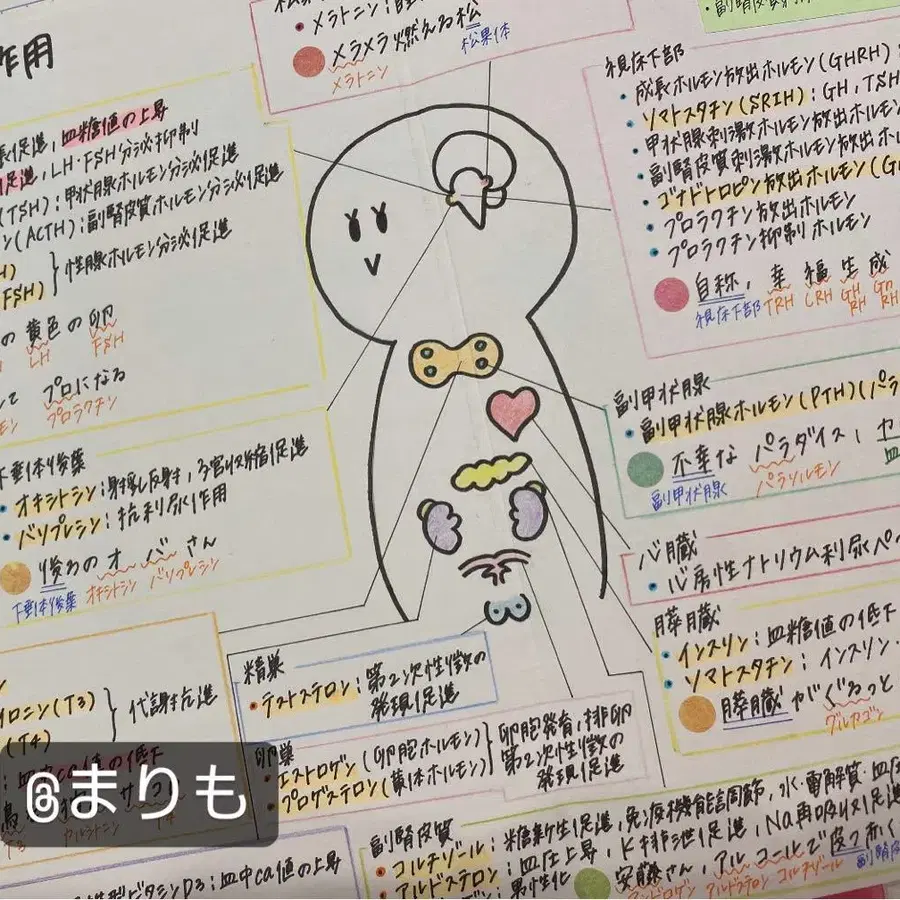 作用
メラメラ燃える松
メラトニン
松果体
血糖値の上昇
LH・FSH分泌抑制
(TSH):甲状腺ホルモン分泌促進
ン(ACTH):副腎皮質ホルモン分泌促進
FSH)
性腺ホルモン分泌促進
の黄色の卵
LH FSH
プロになる
プロラクチン
下垂体後葉
・オキシトシン:射乳反射,子宮収縮促進
・バソプレシン:抗利尿作用
後ろのオバさん
下垂体後葉 オキシトシン バソプレシン
視床下部
・成長ホルモン放出ホルモン(GHRH)
・ソマトスタチン(SRIH):GH,TSH
・甲状腺刺激ホルモン放出ホルモン
・副腎皮質刺激ホルモン放出ホル
・ゴナドトロピン放出ホルモン(G
・プロラクチン放出ホルモン
・プロラクチン抑制ホルモン
自称,幸福生成
視床下部 TRH CRH GHRH GnRH
副甲状腺
・副甲状腺ホルモン(PTH)(パラ
不幸なパラダイス,
副甲状腺 パラソルモン
心臓
・心房性ナトリウム利尿ペ
膵臓
・インスリン:血糖値の低下
・ソマトスタチン:インスリン・
膵臓がぐるっと
グルカゴン
ロニン(T3)
(T4)
代謝亢進
血中ca値の低下
カルシトニン
精巣
・テストステロン:第2次性徴の
発現促進
卵巣
・エストロゲン(卵胞ホルモン)
・プロゲステロン(黄体ホルモン)
卵胞発育,排卵
第2次性徴の
発現促進
副腎皮質
・コルチゾール:糖新生促進,免疫機能調節,水・電解質・血圧
・アルドステロン:血圧上昇,K排泄促進,Na再吸収促進
ゲン:男性化
安藤さん,アルコールで皮フ赤く
アンドロゲン アルドステロン コルチゾール
ビタミンD3:血中ca値の上昇
@まりも